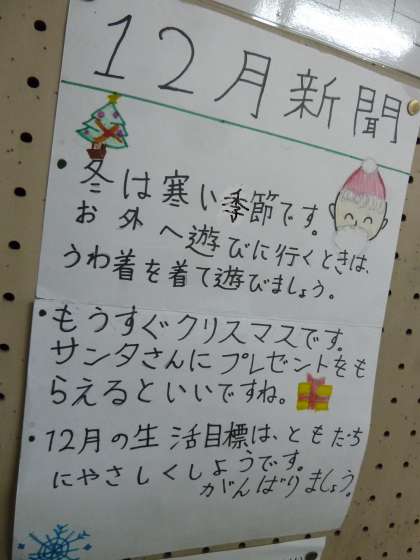 12月新聞
・冬は寒い季節です。
お外へ遊びに行くときは、
うわ着を着て遊びましょう。
・もうすぐクリスマスです。
サンタさんにプレゼントをも
らえるといいですね。
・12月の生活目標は、ともだち
にやさしくしようです。
がんばりましょう。